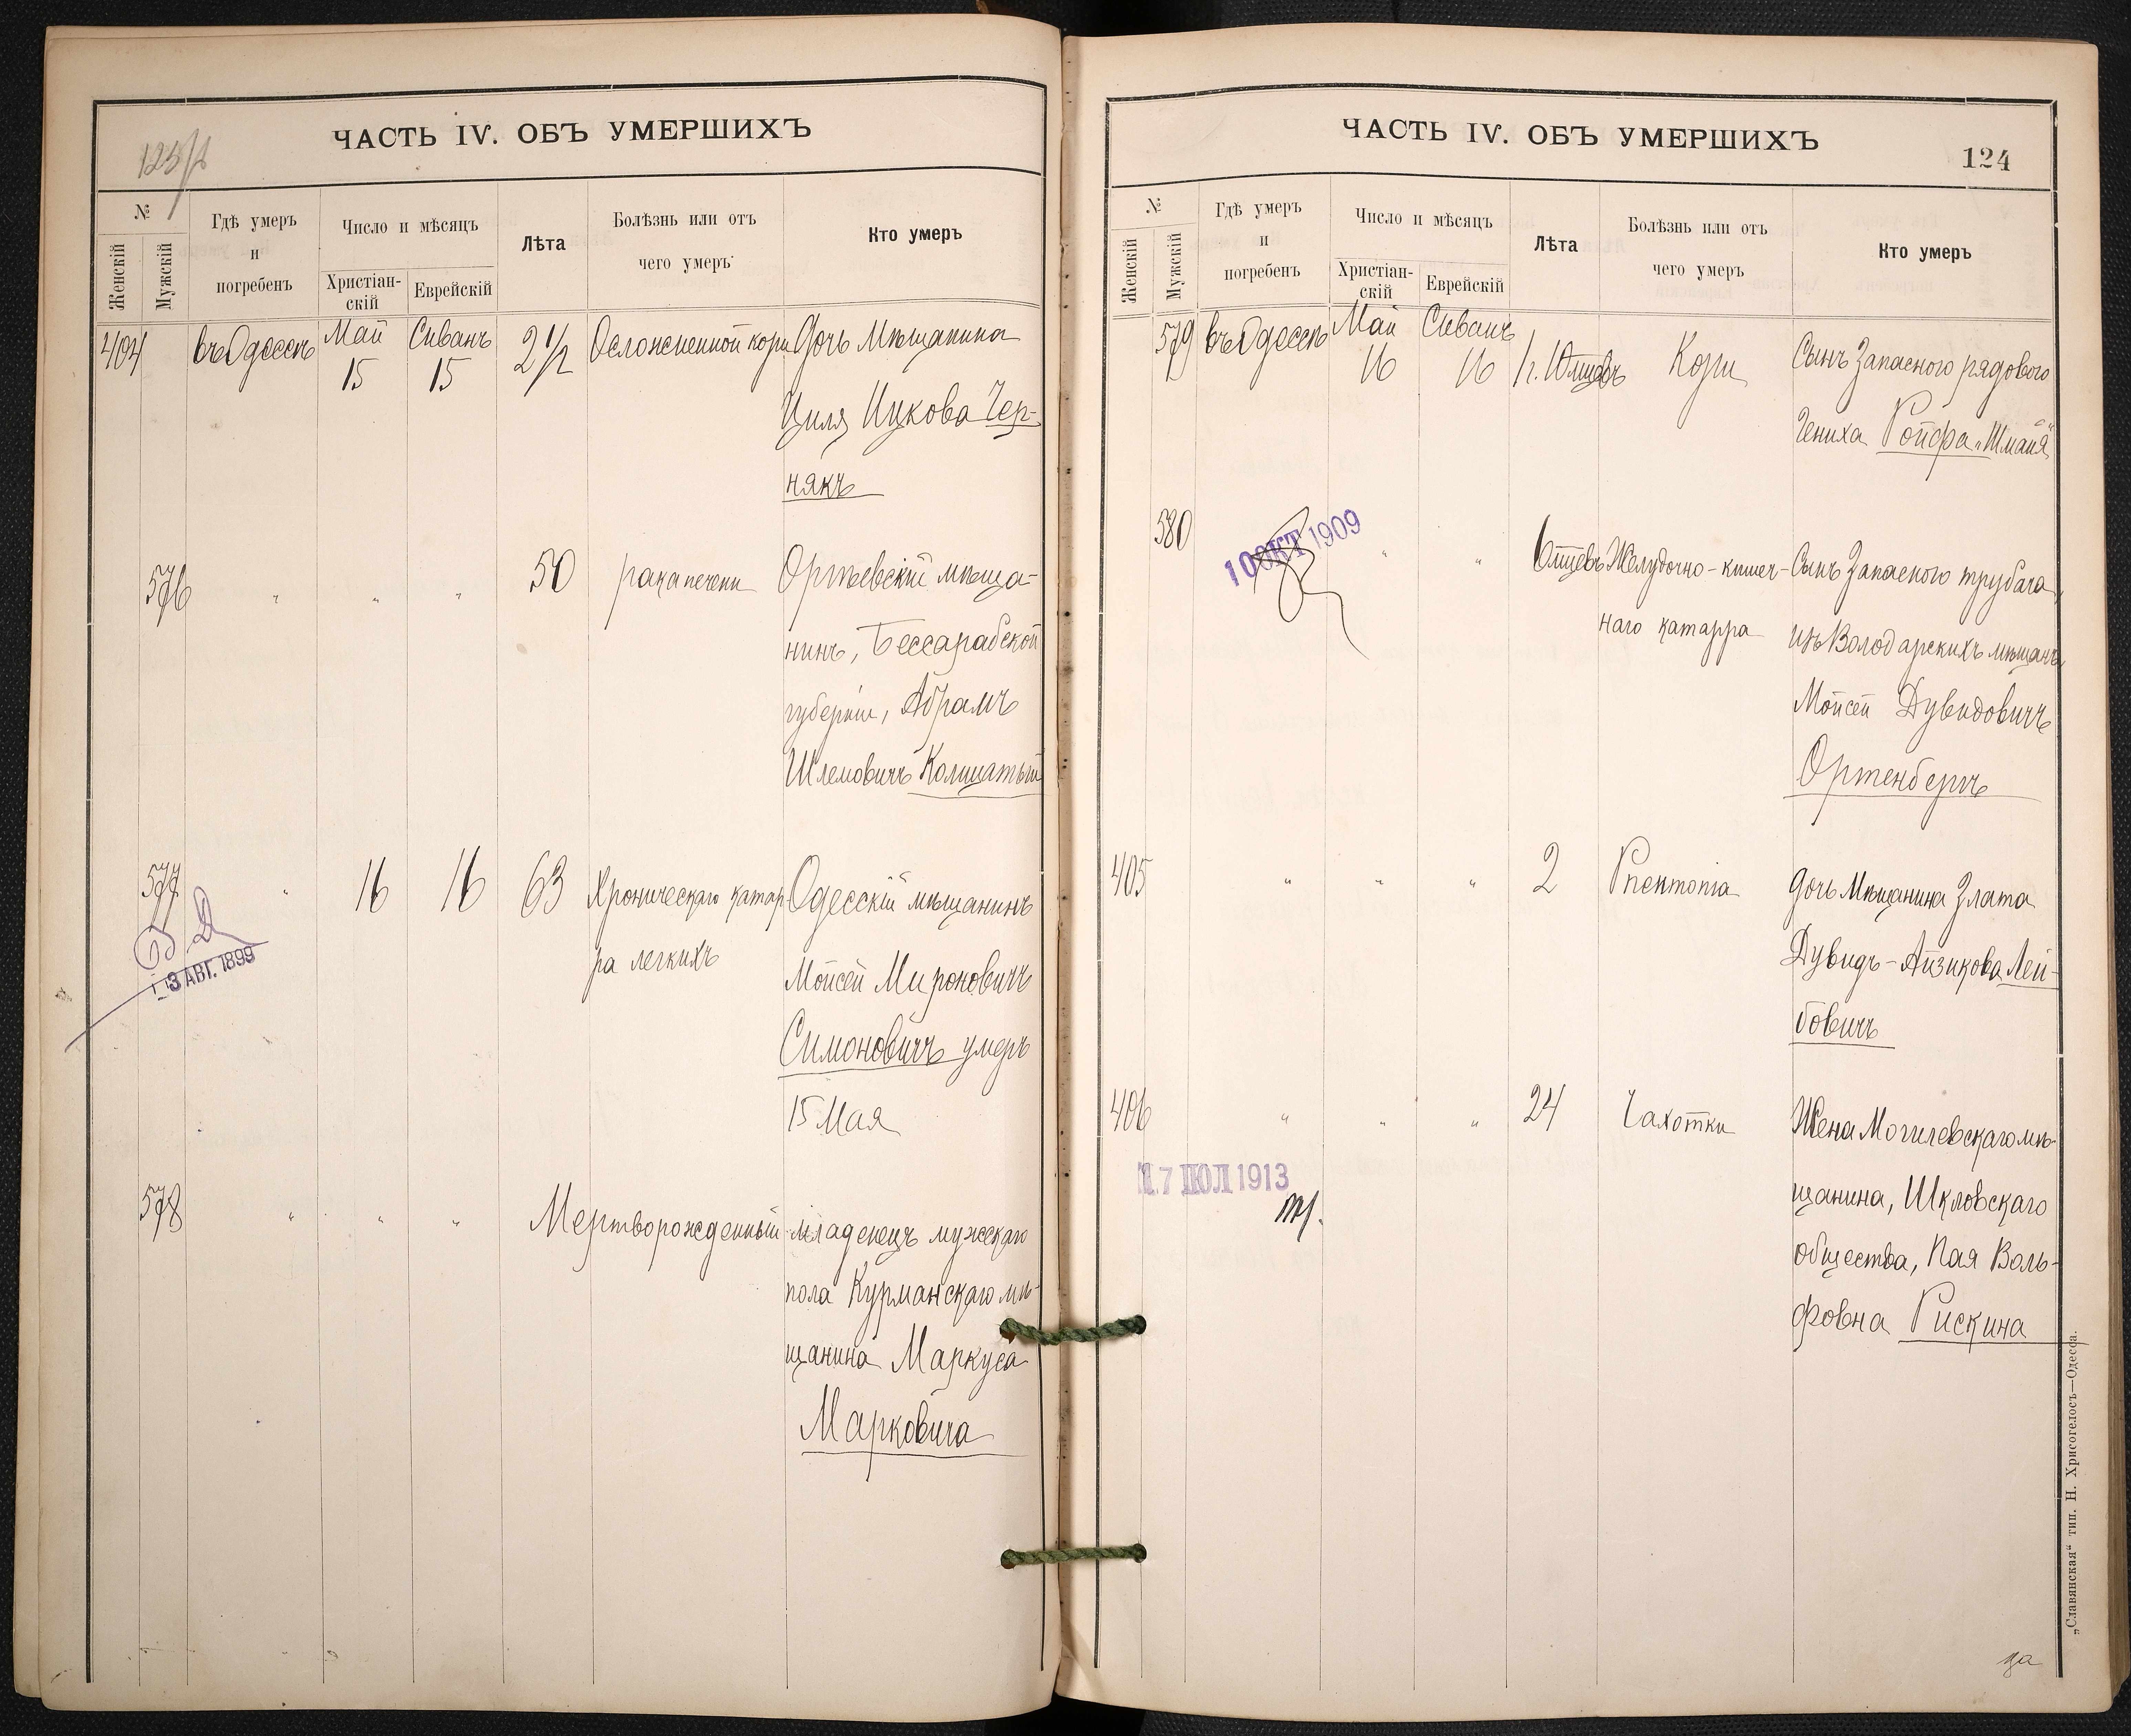 123/б
ЧАСТЬ IV. ОБЪ УМЕРШИХЪ
№
Женскій
Мужскій
Гдѣ умеръ
и
погребенъ
Число и мѣсяцъ
Христіан-
скій
Еврейскій
Лѣта
Болѣзнь или отъ
чего умеръ
Кто умеръ
404 въ Одессѣ Май Сиванъ 2½ Осложненной кори Дочь Мѣщанина
15 15
Циля Ицкова Чер-
някъ
576 „ „ „ 50 рака печени Оргѣевскій мѣща-
нинъ, Бессарабской
губерніи, Абрамъ
Шлемовичъ Колпатый
577 „ 16 16 63 Хроническаго катар- Одесскій мѣщанинъ
ра легкихъ
Мойсей Мироновичъ
3 АВГ. 1899
Симоновичъ умеръ
15 Мая
578 „ „ „ Мертворожденный младенецъ мужскаго
пола Курманскаго мѣ-
щанина Маркуса
Марковича
ЧАСТЬ IV. ОБЪ УМЕРШИХЪ
124
№
Женскій
Мужскій
Гдѣ умеръ
и
погребенъ
Число и мѣсяцъ
Христіан-
скій
Еврейскій
Лѣта
Болѣзнь или отъ
чего умеръ
Кто умеръ
579 въ Одессѣ Май Сиванъ
16 16 1 г. 10 мѣсцвъ Кори Сынъ Запаснаго рядового
Гениха Ройфа „Шмайя“
580 „ „ 6 мѣсцвъ Желудочно-кишеч- Сынъ Запаснаго трубача,
10 ОКТ 1909
наго катарра изъ Володарскихъ мѣщанъ,
Мойсей Дувидовичъ
Ортенбергъ
405 „ „ „ 2 Pnevmonia Дочь Мѣщанина Злата
Дувидъ-Айзикова Лей-
бовичъ
406 „ „ „ 24 Чахотки Жена Могилевскаго мѣ-
17 ІЮЛ 1913
щанина, Шкловскаго
общества, Пая Воль-
фовна Рискина
„Славянская“ тип. Н. Хрисогелосъ—Одесса.